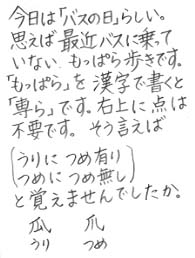 今日は「バスの日」らしい。
思えば最近バスに乗って
いない。もっぱら歩きです。
「もっぱら」を漢字で書くと
「専ら」です。右上に点は
不要です。そう言えば
(うりに つめ有り
つめに つめ無し)
と覚えませんでしたか。
瓜 爪
うり つめ